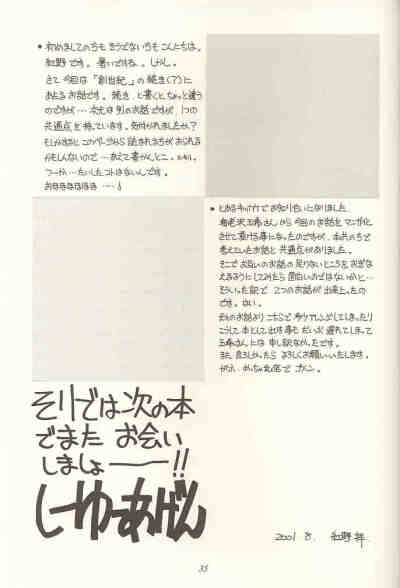 • 初めましての方もそうでない方もこんにちは。
紅野です。暑いですね、しかし。
さて今回は「創世紀」の続き(?)に
あたるお話です。続き、と書くとちょっと違う
のですが…次元は別のお話ですが、1つの
共通点を持っています。気付かれましたか?
もしかするとこのページから読まれる方がおられる
かもしんないので…あえて書かんとこ。
つーか…たいしたコトはないんです。
• とあるキッカケでお知り合いになりました
さんから今回のお話をマンガ化
させて頂ける事になったのですが、本人のちで
考えていたお話と共通点がありました。
そこでお互いのお話の足りないところをおぎな
えるようにしてみたら面白いのではないかと…
そういった訳で2つのお話が出来上ったの
です。はい。
元のお話よりこちらで多少アレンジしてしまったり
こうして本として出す事もだいぶ遅れてしまって
さんには申し訳なかったです。
また良ろしかったらよろしくお願いいたします。
そりでは次の本
でまた お会い
しましょ――!!
しーゆーあげん
2001 8. 紅野
35